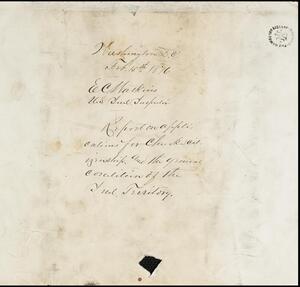 Washington D.C.
Feb. 15th 1876
E C Watkins
U.S. Ind. Inspector
Report on appli-
cations for Cherokee cit-
izenship, and the general
condition of the
Ind. Territory.